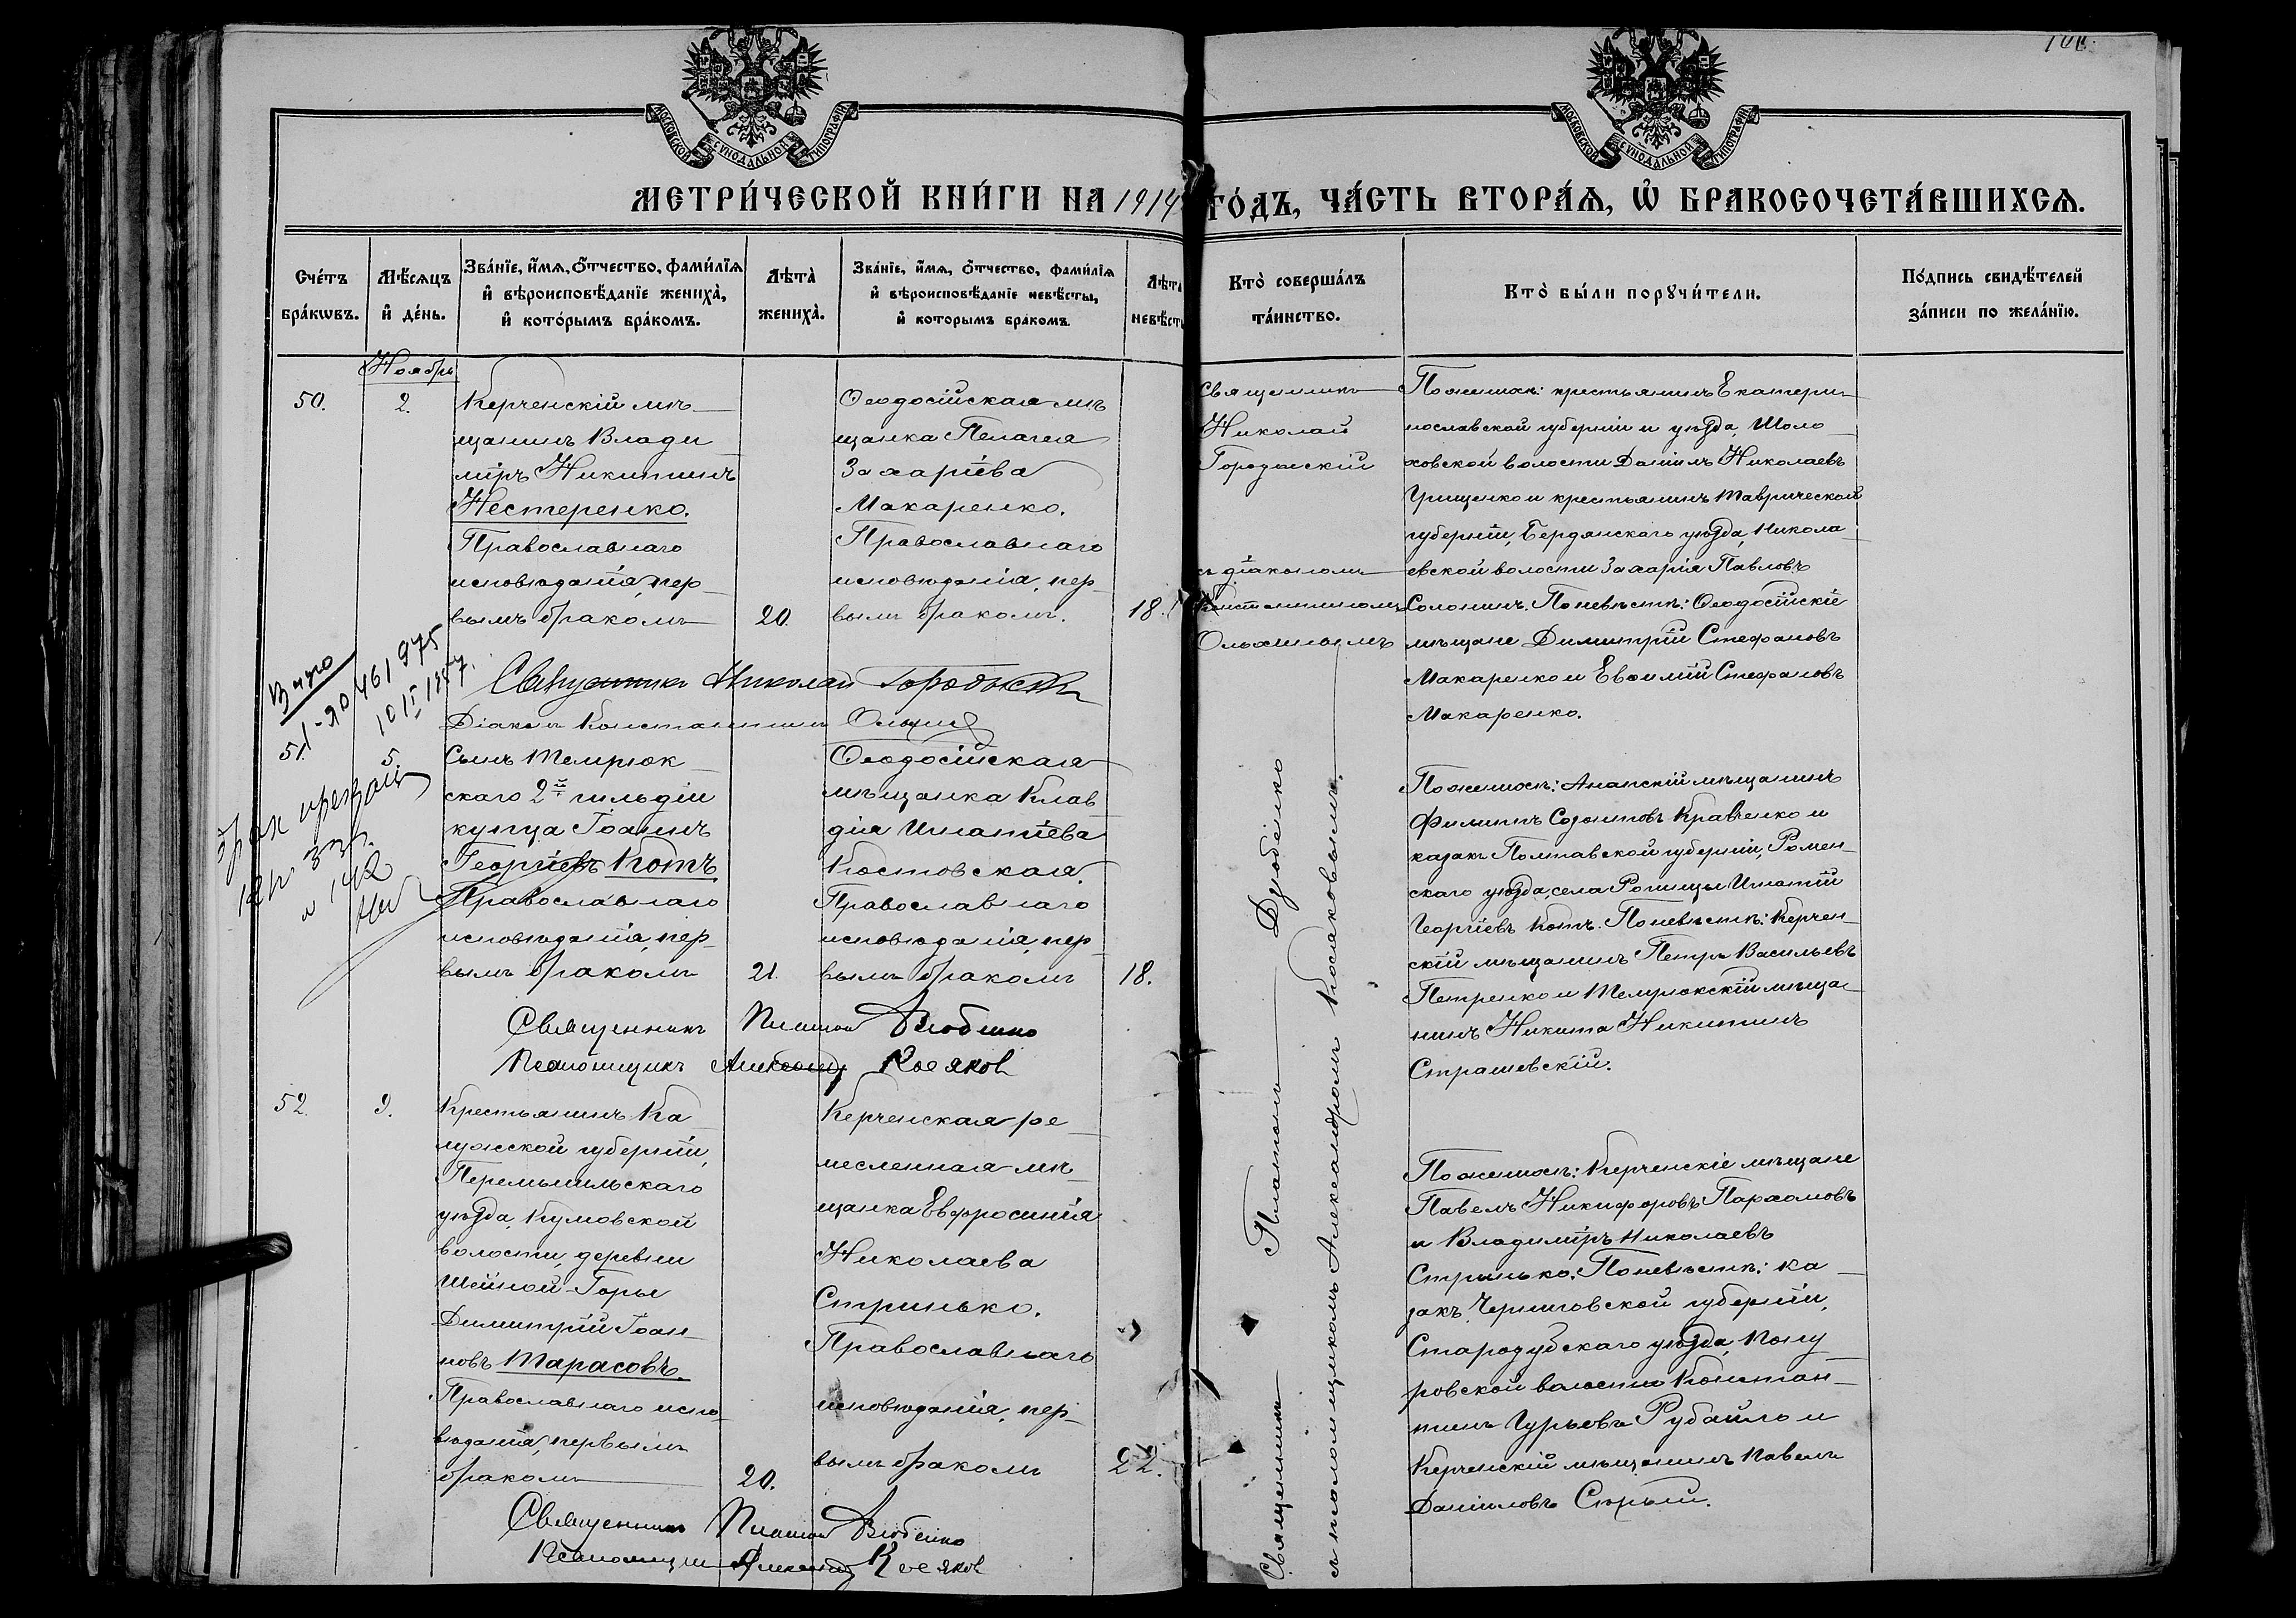 МОСКОВСКОЙ СѴНОДАЛЬНОЙ ТИПОГРАФІИ
МОСКОВСКОЙ СѴНОДАЛЬНОЙ ТИПОГРАФІИ
МЕТРИ́ЧЕСКОЙ КНИ́ГИ НА 1914 ГО́ДЪ, ЧА́СТЬ ВТОРА́Я, Ѡ҆ БРАКОСОЧЕТА́ВШИХСЯ.
Сче́тъ
бра́кωвъ.
Мѣ́сяцъ
и҆ де́нь.
Зва́нїе, и҆́мя, ѻ҆́тчество, фами́лїя
и҆ вѣроисповѣ́данїе жениха̀,
и҆ кото́рымъ бра́комъ.
Лѣта̀
жениха̀.
Зва́нїе, и҆́мя, ѻ҆́тчество, фами́лїя
и҆ вѣроисповѣ́данїе невѣ́сты,
и҆ которымъ бра́комъ.
Лѣта
невѣсты
Кто̀ соверша́лъ
та́инство.
Кто̀ бы́ли порꙋчи́тели.
По́дпись свидѣ́телей
за́писи по жела́нїю.
Ноябрь
50.
2.
Керченскій мѣ-
щанинъ Влади
міръ Никитинъ
Нестеренко.
Православнаго
исповѣданія, пер-
вымъ бракомъ
20.
Ѳеодосійская мѣ
щанка Пелагея
Захаріева
Макаренко.
Православнаго
исповѣданія, пер-
вымъ бракомъ.
18.
Священникъ
Николай
Городоискій
съ діакономъ
Константиномъ
Ольхинымъ
По женихѣ: крестьянинъ Екатери-
нославской губерніи и уѣзда, Шоло-
ховской волости Даніилъ Николаевъ
Грищенко и крестьянинъ Таврической
губерніи, Бердянскаго уѣзда, Никола-
евской волости Захарія Павловъ
Солонинъ. По невѣстѣ: Ѳеодосійскіе
мѣщане Димитрій Стефановъ
Макаренко и Евѳимій Стефановъ
Макаренко.
Священникъ Николай
Діаконъ Константинъ
51.
5.
Сынъ Темрюк-
скаго 2й гильдіи
купца Іоаннъ
Георгіевъ Котъ.
Православнаго
исповѣданія, пер-
вымъ бракомъ
21.
Ѳеодосійская
мѣщанка Клав
дія Игнатіева
Костовская.
Православнаго
исповѣданія, пер-
вымъ бракомъ
18.
По женихѣ: Анапскій мѣщанинъ
Филиппъ Созонтовъ Кравченко и
казакъ Полтавской губерніи, Ромен-
скаго уѣзда, села Рогинцы Игнатій
Георгіевъ Котъ. По невѣстѣ: Керчен-
скій мѣщанинъ Петръ Васильевъ
Петренко и Темрюкскій мѣща-
нинъ Никита Никитинъ
Страшевскій.
Священникъ Платонъ Дзюбенко
Псаломщикъ Александръ Косяков
52.
9.
Крестьянинъ Ка
лужской губерніи,
Перемышльскаго
уѣзда, Кумовской
волости, деревни
Шейной-Горы
Димитрій Іоан-
новъ Тарасовъ.
Православнаго испо-
вѣданія, первымъ
бракомъ
20.
Керченская ре-
месленная мѣ-
щанка Евфросинія
Николаева
Стринько.
Православнаго
исповѣданія, пер-
вымъ бракомъ
22.
Священникъ Платонъ Дзюбенко
съ псаломщикомъ Александромъ Косяковымъ.
По женихѣ: Керченскіе мѣщане
Павелъ Никифоровъ Пархомовъ
и Владиміръ Николаевъ
Стринько. По невѣстѣ: ка-
закъ Черниговской губерніи,
Стародубскаго уѣзда, Пону
ровской волости Констан-
тинъ Гурьевъ Рубайло и
Керченскій мѣщанинъ Павелъ
Даніиловъ Скрыпи.
Священникъ Платонъ Дзюбенко
Псаломщикъ Александръ Косяков